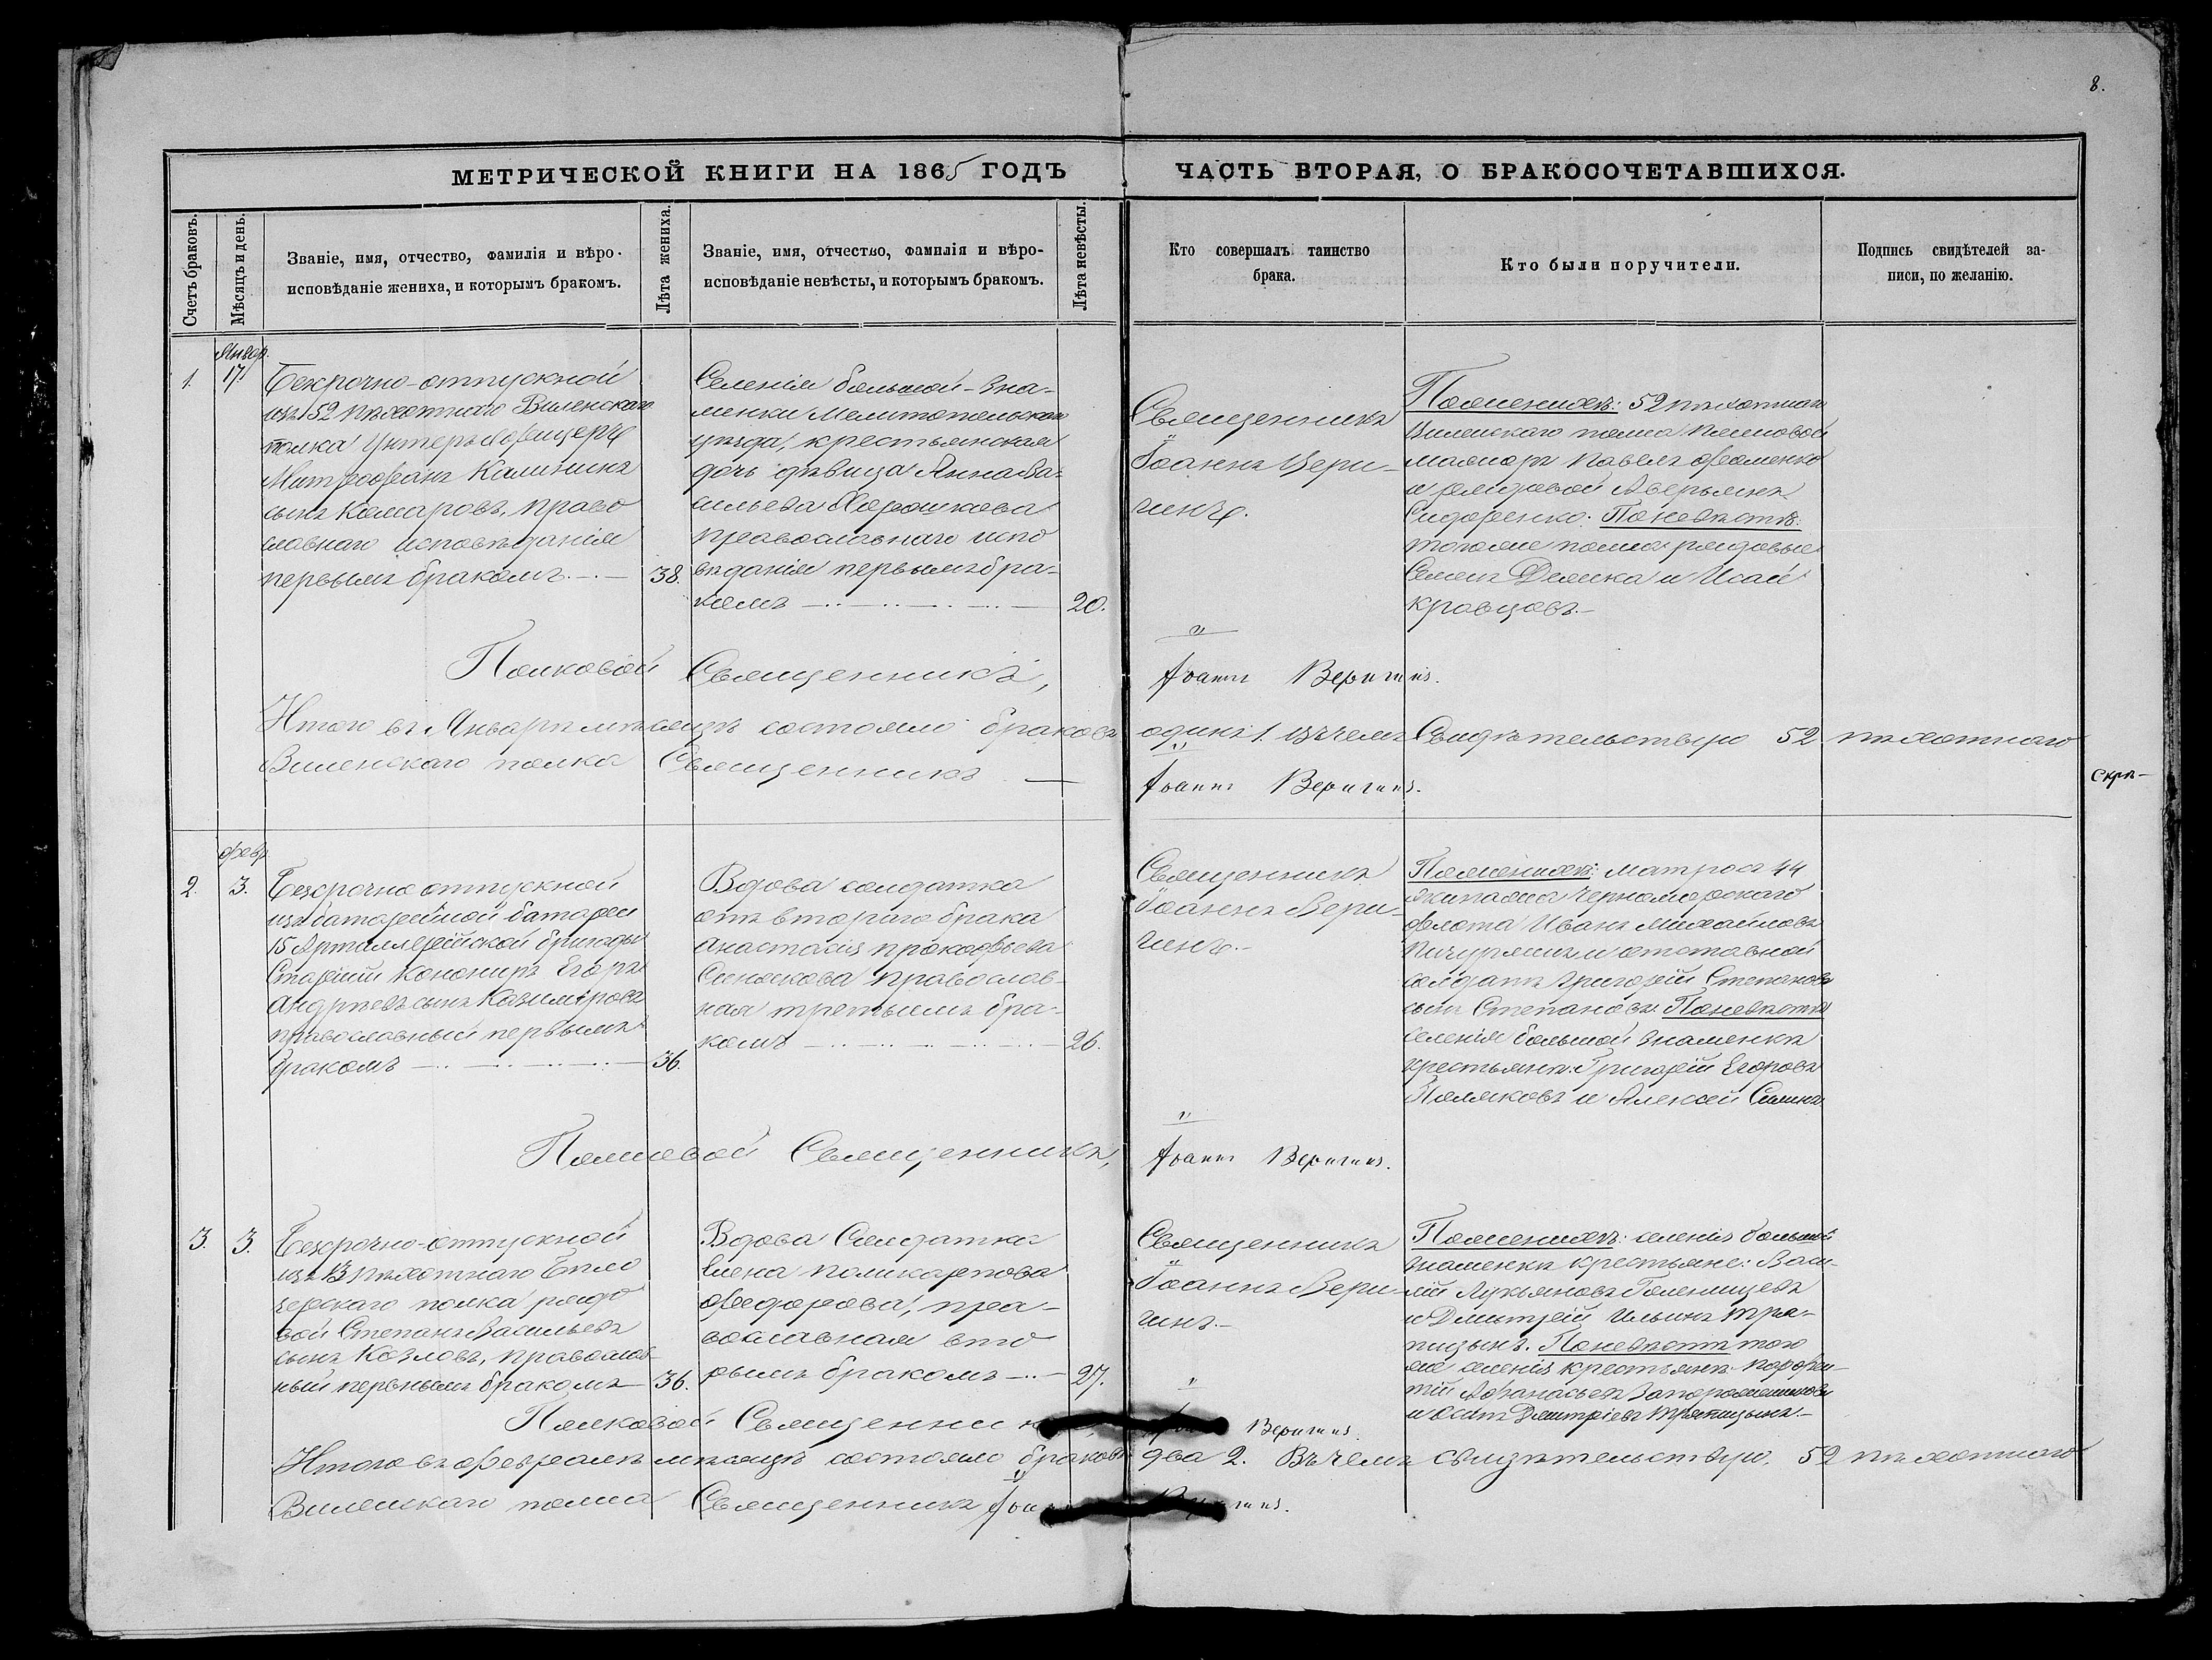 8.
МЕТРИЧЕСКОЙ КНИГИ НА 1865 ГОДЪ
ЧАСТЬ ВТОРАЯ, О БРАКОСОЧЕТАВШИХСЯ.
Счетъ браковъ.
Мѣсяцъ и день.
Званіе, имя, отчество, фамилія и вѣро-
исповѣданіе жениха, и которымъ бракомъ.
Лѣта жениха.
Званіе, имя, отчество, фамилія и вѣро-
исповѣданіе невѣсты, и которымъ бракомъ.
Лѣта невѣсты.
Кто совершалъ таинство
брака.
Кто были поручители.
Подпись свидѣтелей за-
писи, по желанію.
1.
Январ.
17.
Безсрочно-отпускной
изъ 52 пѣхотнаго Виленскаго
полка Унтеръ Офицеръ
Митрофанъ Калининъ
сынъ Комаровъ, право
славнаго исповѣданія
первымъ бракомъ
38.
Селенія большой-Зна-
менки Мелитопольскаго
уѣзда, крестьянская
дочь дѣвица Анна Ва-
сильева Хорошкова
православнаго испо
вѣданія первымъ бра-
комъ
20.
Священникъ
Іоаннъ Вери-
гинъ.
По женихѣ: 52 пѣхотнаго
Виленскаго полка
Павелъ Фоменко
и рядовой Аверьянъ
Сидоренко. По невѣстѣ:
тогоже полка рядовые
Семенъ и Исай
Кравцовъ.
Полковой Священникъ, Іоаннъ Веригинъ.
Итого въ Январѣ мѣсяцѣ состояло браковъ одинъ 1. Въ чемъ Свидѣтельствую 52 пѣхотнаго
Виленскаго полка Священникъ Іоаннъ Веригинъ.
Скрѣ-
2.
Февр.
3.
Безсрочно отпускной
батарейной батареи
15 Артиллерійской бригады
Старшій Канониръ Егоръ
Андреевъ сынъ Казимировъ
православный первымъ
бракомъ
36.
Вдова солдатка
отъ втораго брака
Анастасія Прокофьева
Синякова православ-
ная третьимъ бра-
комъ
26.
Священникъ
Іоаннъ Вери-
гинъ.
По женихѣ: матросъ 44
экипажа Черноморскаго
флота Иванъ Михайловъ
и отставной
солдатъ Григорій Степановъ
сынъ Степановъ. По невѣстѣ
селенія большой Знаменки
крестьяне: Григорій Егоровъ
Поляковъ и Алексей Силинъ
Полковой Священникъ, Іоаннъ Веригинъ.
3.
3.
Безсрочно-отпускной
изъ 13 пѣхотнаго Бѣло
зерскаго полка рядо
вой Степанъ Васильевъ
сынъ Козловъ, православ-
ный первымъ бракомъ
36.
Вдова Солдатка
Елена Поликарпова
Федорова, пра-
вославная вто
рымъ бракомъ
27.
Священникъ
Іоаннъ Вери-
гинъ.
По женихѣ: селенія большой
Знаменки крестьяне: Васи-
лій Лукьяновъ Голенищевъ
и Дмитрій Ильинъ Тря-
пицынъ. По невѣстѣ того
же селенія крестьяне
Афанасьевъ
и Осипъ Дмитріевъ Тряпицынъ.
Полковой Священник Веригинъ.
Итого въ Февралѣ мѣсяцѣ состояло браковъ два 2. Въ чемъ свидѣтельствую, 52 пѣхотнаго
Виленскаго полка Священникъ